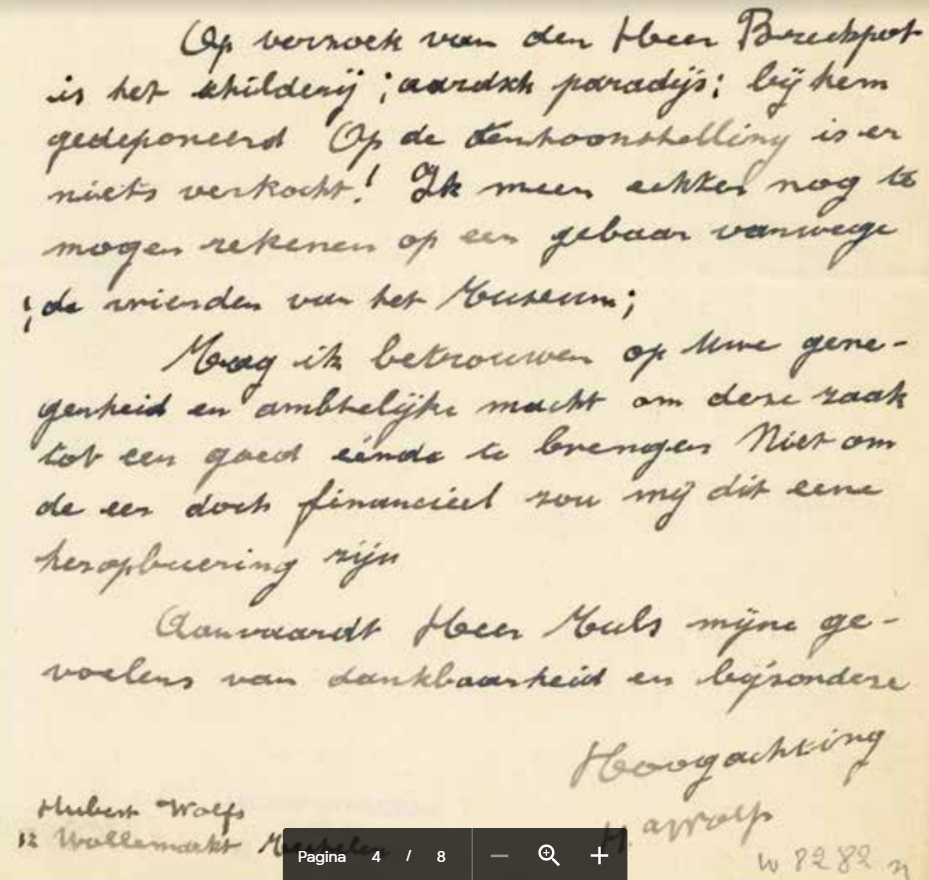 Op verzoek van den Heer Breckpot
is het schilderij ; aardsch paradijs ; bij hem
gedeponeerd Op de tentoonstelling is er
niets verkocht! Ik meen echter nog te
mogen rekenen op een gebaar vanwege
; de vrienden van het Museum ;
Mag ik betrouwen op Uwe gene-
genheid en ambtelijke macht om deze zaak
tot een goed einde te brengen Niet om
de eer doch financieel zou mij dit eene
heropbeuring zijn
Aanvaardt Heer Muls mijne ge-
voelens van dankbaarheid en bijzondere
Hoogachting
Hubert Wolfs
H. Wolfs
12 Wollemarkt Mechelen
W 8282
Pagina 4 / 8